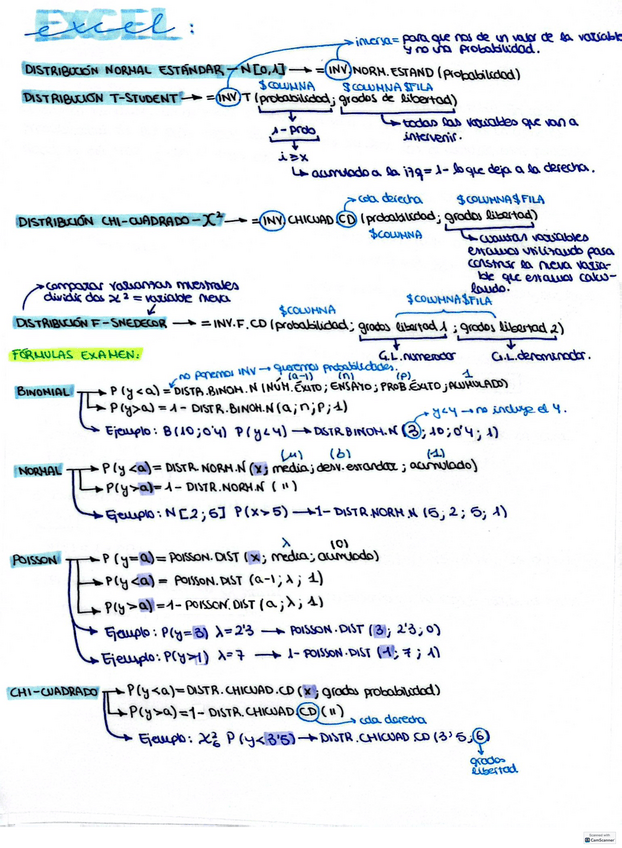 EXCEL:
inversa = para que nos de un valor de la variable
y no una probabilidad.
DISTRIBUCIÓN NORMAL ESTÁNDAR - N[0,1] → = INV NORM.ESTAND (probabilidad)
$COLUMNA $COLUMNA$FILA
DISTRIBUCIÓN T-STUDENT → = INV T (probabilidad; grados de libertad)
1 - prob
todas las variables que van a
intervenir.
i ≥ x
acumulado a la izq = 1 - lo que deja a la derecha.
cola derecha $COLUMNA$FILA
DISTRIBUCIÓN CHI-CUADRADO - X² → = INV CHICUAD CD (probabilidad; grados libertad)
$COLUMNA
cuantas variables
estamos utilizando para
construir la nueva varia-
ble que estamos calcu-
lando.
comparar varianzas muestrales
dividir dos x² = variable nueva
$COLUMNA $COLUMNA$FILA
DISTRIBUCIÓN F-SNEDECOR → = INV.F.CD (probabilidad; grados libertad 1; grados libertad 2)
G.L. numerador G.L. denominador.
FÓRMULAS EXAMEN:
no ponemos INV → queremos probabilidades
(a-1) (n) (p) 1
BINOMIAL → P(y<a) = DISTR.BINOM.N (NÚM.ÉXITO; ENSAYO; PROB.ÉXITO; ACUMULADO)
→ P(y>a) = 1 - DISTR.BINOM.N (a; n; p; 1)
y<4 → no incluye el 4.
→ Ejemplo: B(10; 0'4) P(y<4) → DISTR.BINOM.N (3; 10; 0'4; 1)
(μ) (σ) (1)
NORMAL → P(y<a) = DISTR.NORM.N (x; media; desv.estandar; acumulado)
→ P(y>a) = 1 - DISTR.NORM.N (")
→ Ejemplo: N[2;5] P(x>5) → 1 - DISTR.NORM.N (5; 2; 5; 1)
λ (0)
POISSON → P(y=a) = POISSON.DIST (x; media; acumulado)
→ P(y<a) = POISSON.DIST (a-1; λ; 1)
→ P(y>a) = 1 - POISSON.DIST (a; λ; 1)
→ Ejemplo: P(y=3) λ=2'3 → POISSON.DIST (3; 2'3; 0)
→ Ejemplo: P(y>1) λ=7 → 1 - POISSON.DIST (1; 7; 1)
CHI-CUADRADO → P(y<a) = DISTR.CHICUAD.CD (x; grados probabilidad)
→ P(y>a) = 1 - DISTR.CHICUAD.CD (")
cola derecha
→ Ejemplo: X²6 P(y<3'5) → DISTR.CHICUAD.CD (3'5; 6)
grados
libertad.
Scanned with
CamScanner